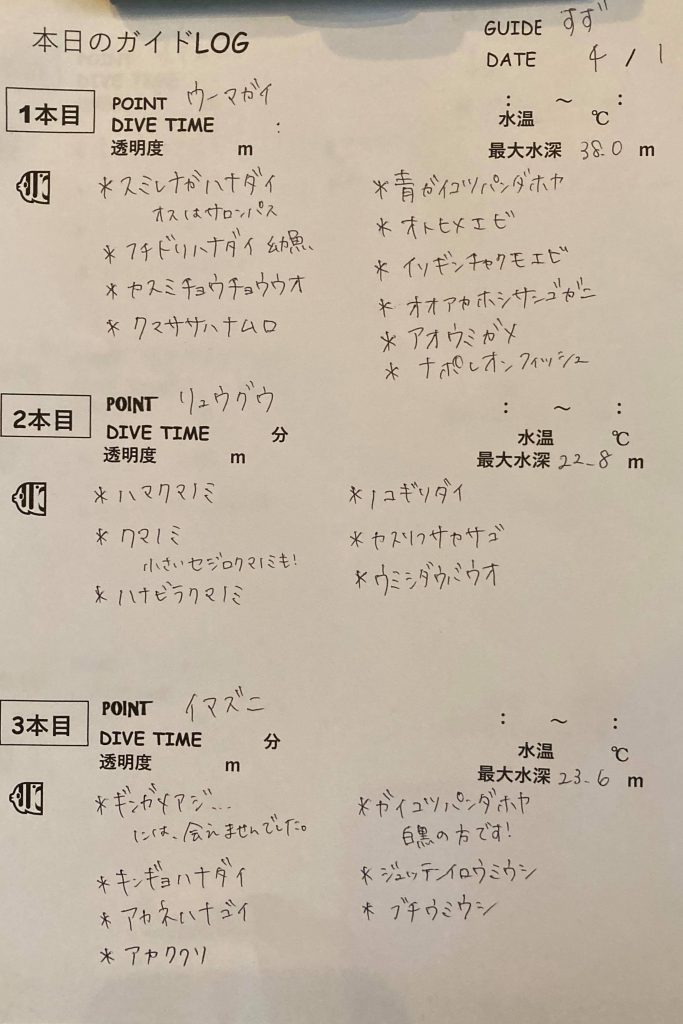 本日のガイドLOG
GUIDE すず
DATE 4 / 1
1本目
POINT ウーマガイ
DIVE TIME :
透明度 m
: ~ :
水温 ℃
最大水深 38.0 m
*スミレナガハナダイ
オスはサロンパス
*フチドリハナダイ 幼魚
*ヤスミチョウチョウウオ
*クマササハナムロ
*青ガイコツパンダホヤ
*オトヒメエビ
*イソギンチャクモエビ
*オオアカホシサンゴガニ
*アオウミガメ
*ナポレオンフィッシュ
2本目
POINT リュウグウ
DIVE TIME 分
透明度 m
: ~ :
水温 ℃
最大水深 22.8 m
*ハマクマノミ
*クマノミ
小さいセジロクマノミも!
*ハナビラクマノミ
*ノコギリダイ
*ヤスリフサカサゴ
*ウミシダウバウオ
3本目
POINT イマズニ
DIVE TIME 分
透明度 m
: ~ :
水温 ℃
最大水深 23.6 m
*ギンガメアジ...
には、会えませんでした。
*キンギョハナダイ
*アカネハナゴイ
*アカククリ
*ガイコツパンダホヤ
白黒の方です!
*ジュッテンイロウミウシ
*ブチウミウシ